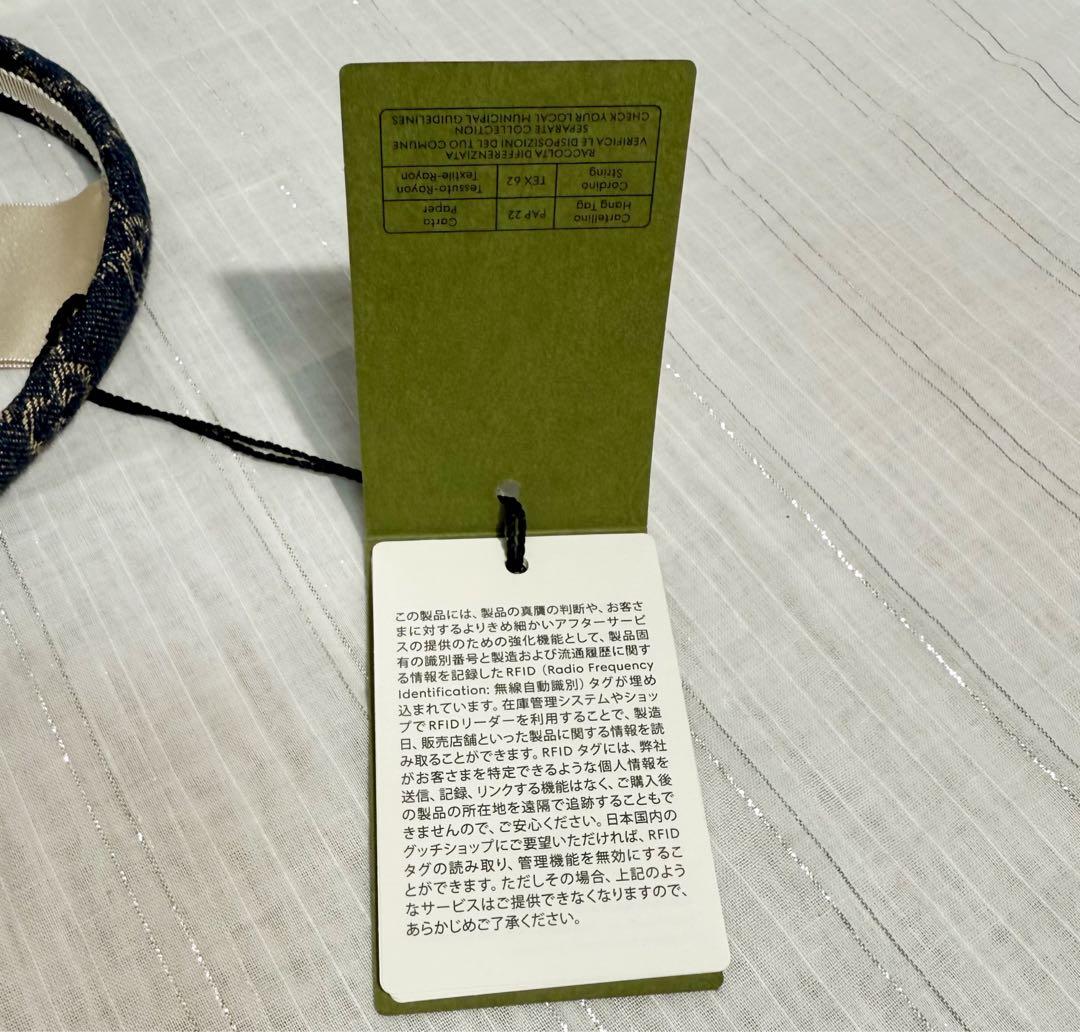 Cartellino
Hang Tag
PAP 22
Carta
Paper
Cordino
String
TEX 62
Tessuto-Rayon
Textile-Rayon
RACCOLTA DIFFERENZIATA
VERIFICA LE DISPOSIZIONI DEL TUO COMUNE
SEPARATE COLLECTION
CHECK YOUR LOCAL MUNICIPAL GUIDELINES
この製品には、製品の真贋の判断や、お客さ
まに対するよりきめ細かいアフターサービ
スの提供のための強化機能として、製品固
有の識別番号と製造および流通履歴に関す
る情報を記録したRFID（Radio Frequency
Identification: 無線自動識別）タグが埋め
込まれています。在庫管理システムやショッ
プでRFIDリーダーを利用することで、製造
日、販売店舗といった製品に関する情報を読
み取ることができます。RFID タグには、弊社
がお客さまを特定できるような個人情報を
送信、記録、リンクする機能はなく、ご購入後
の製品の所在地を遠隔で追跡することもで
きませんので、ご安心ください。日本国内の
グッチショップにご要望いただければ、RFID
タグの読み取り、管理機能を無効にするこ
とができます。ただしその場合、上記のよう
なサービスはご提供できなくなりますので、
あらかじめご了承ください。